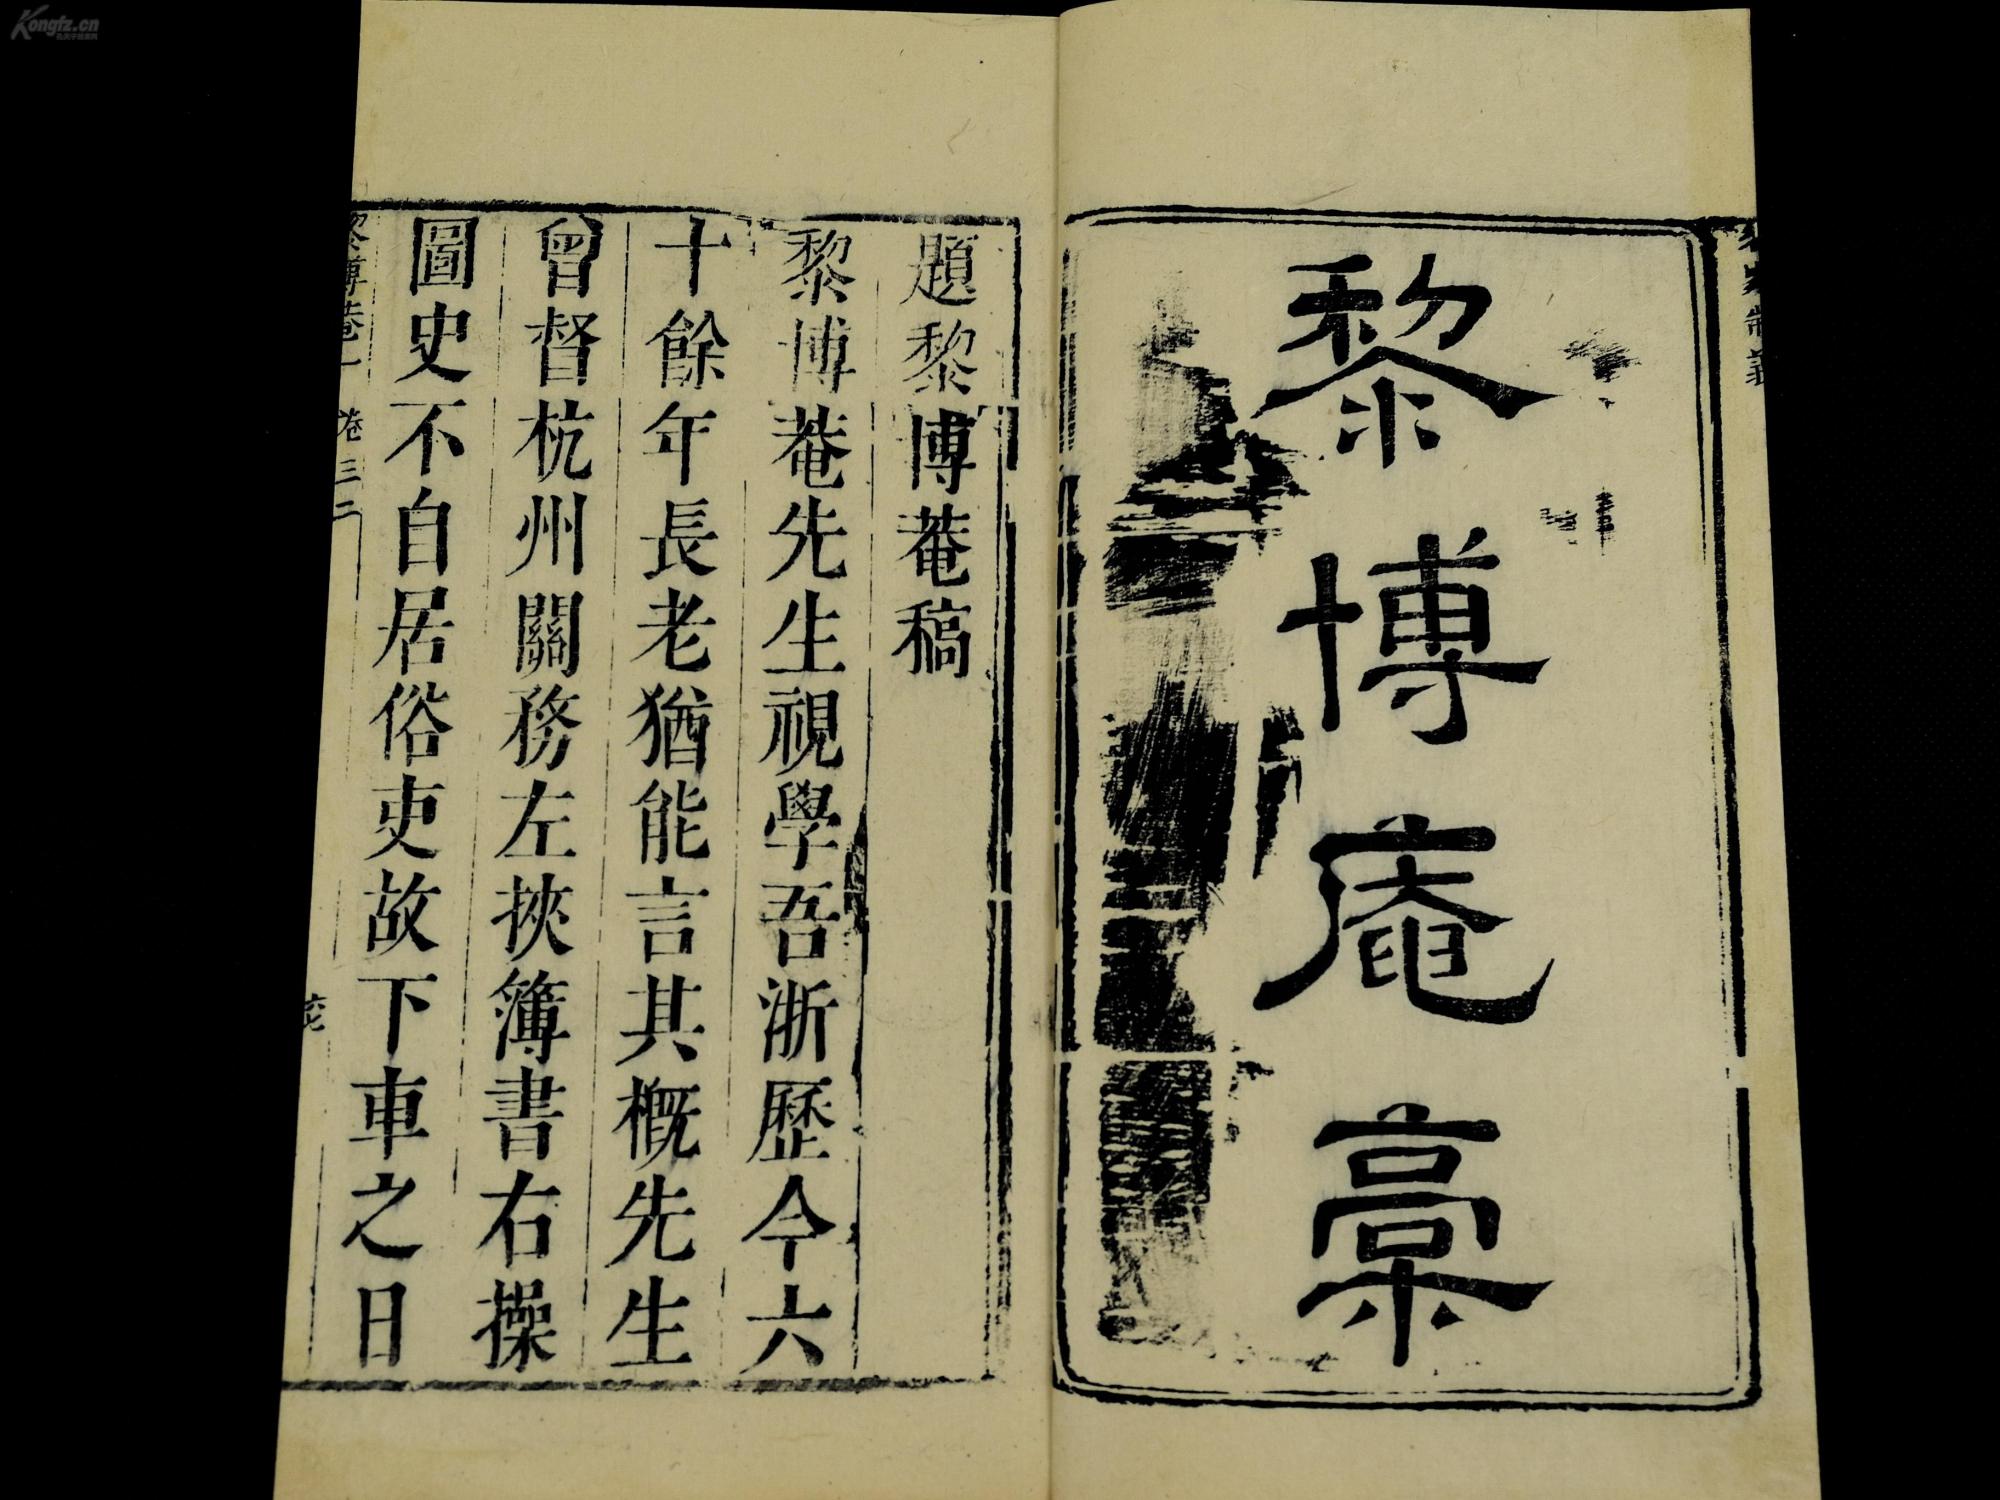 Kongfz.cn
黎博庵稾
題黎博菴稿
黎博菴先生視學吾浙歷今六
十餘年長老猶能言其槪先生
曾督杭州關務左挾簿書右操
圖史不自居俗吏故下車之日